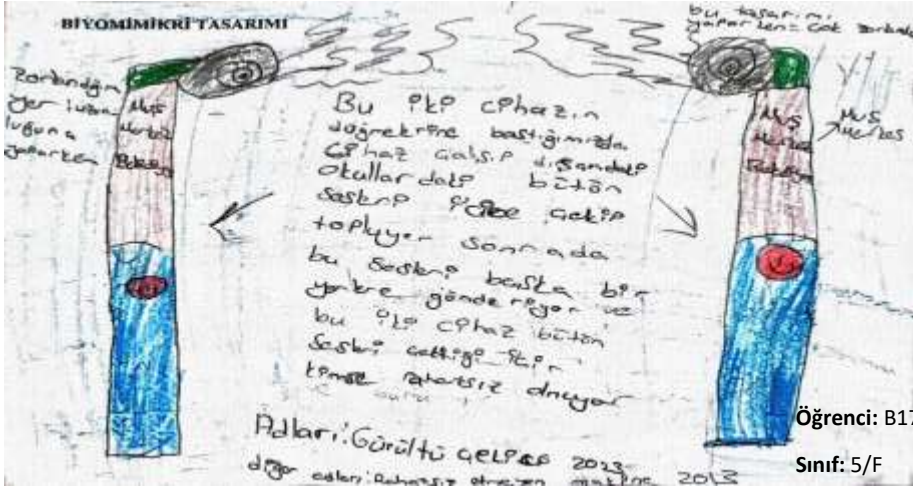 BİYOMİMİKRİ TASARIMI
bu tasarımı
yaparken= Çok
Zorlandığım
yer
yaparken
Muş
Merkez
Muş
Merkez
Muş
Merkez
Bu iki cihazın
düğmelerine bastığımızda
Cihaz çalışıp dışarıdaki
okullardaki bütün
sesleri içine çekip
topluyor sonrada
bu sesleri başka bir
yerlere gönderiyor ve
bu iki cihaz bütün
sesleri çektiği için
kimse rahatsız olmuyor
Adları: Gürültü 2023
diğer adları: Rahatsız etmeyen makine 2013
Öğrenci: B17
Sınıf: 5/F